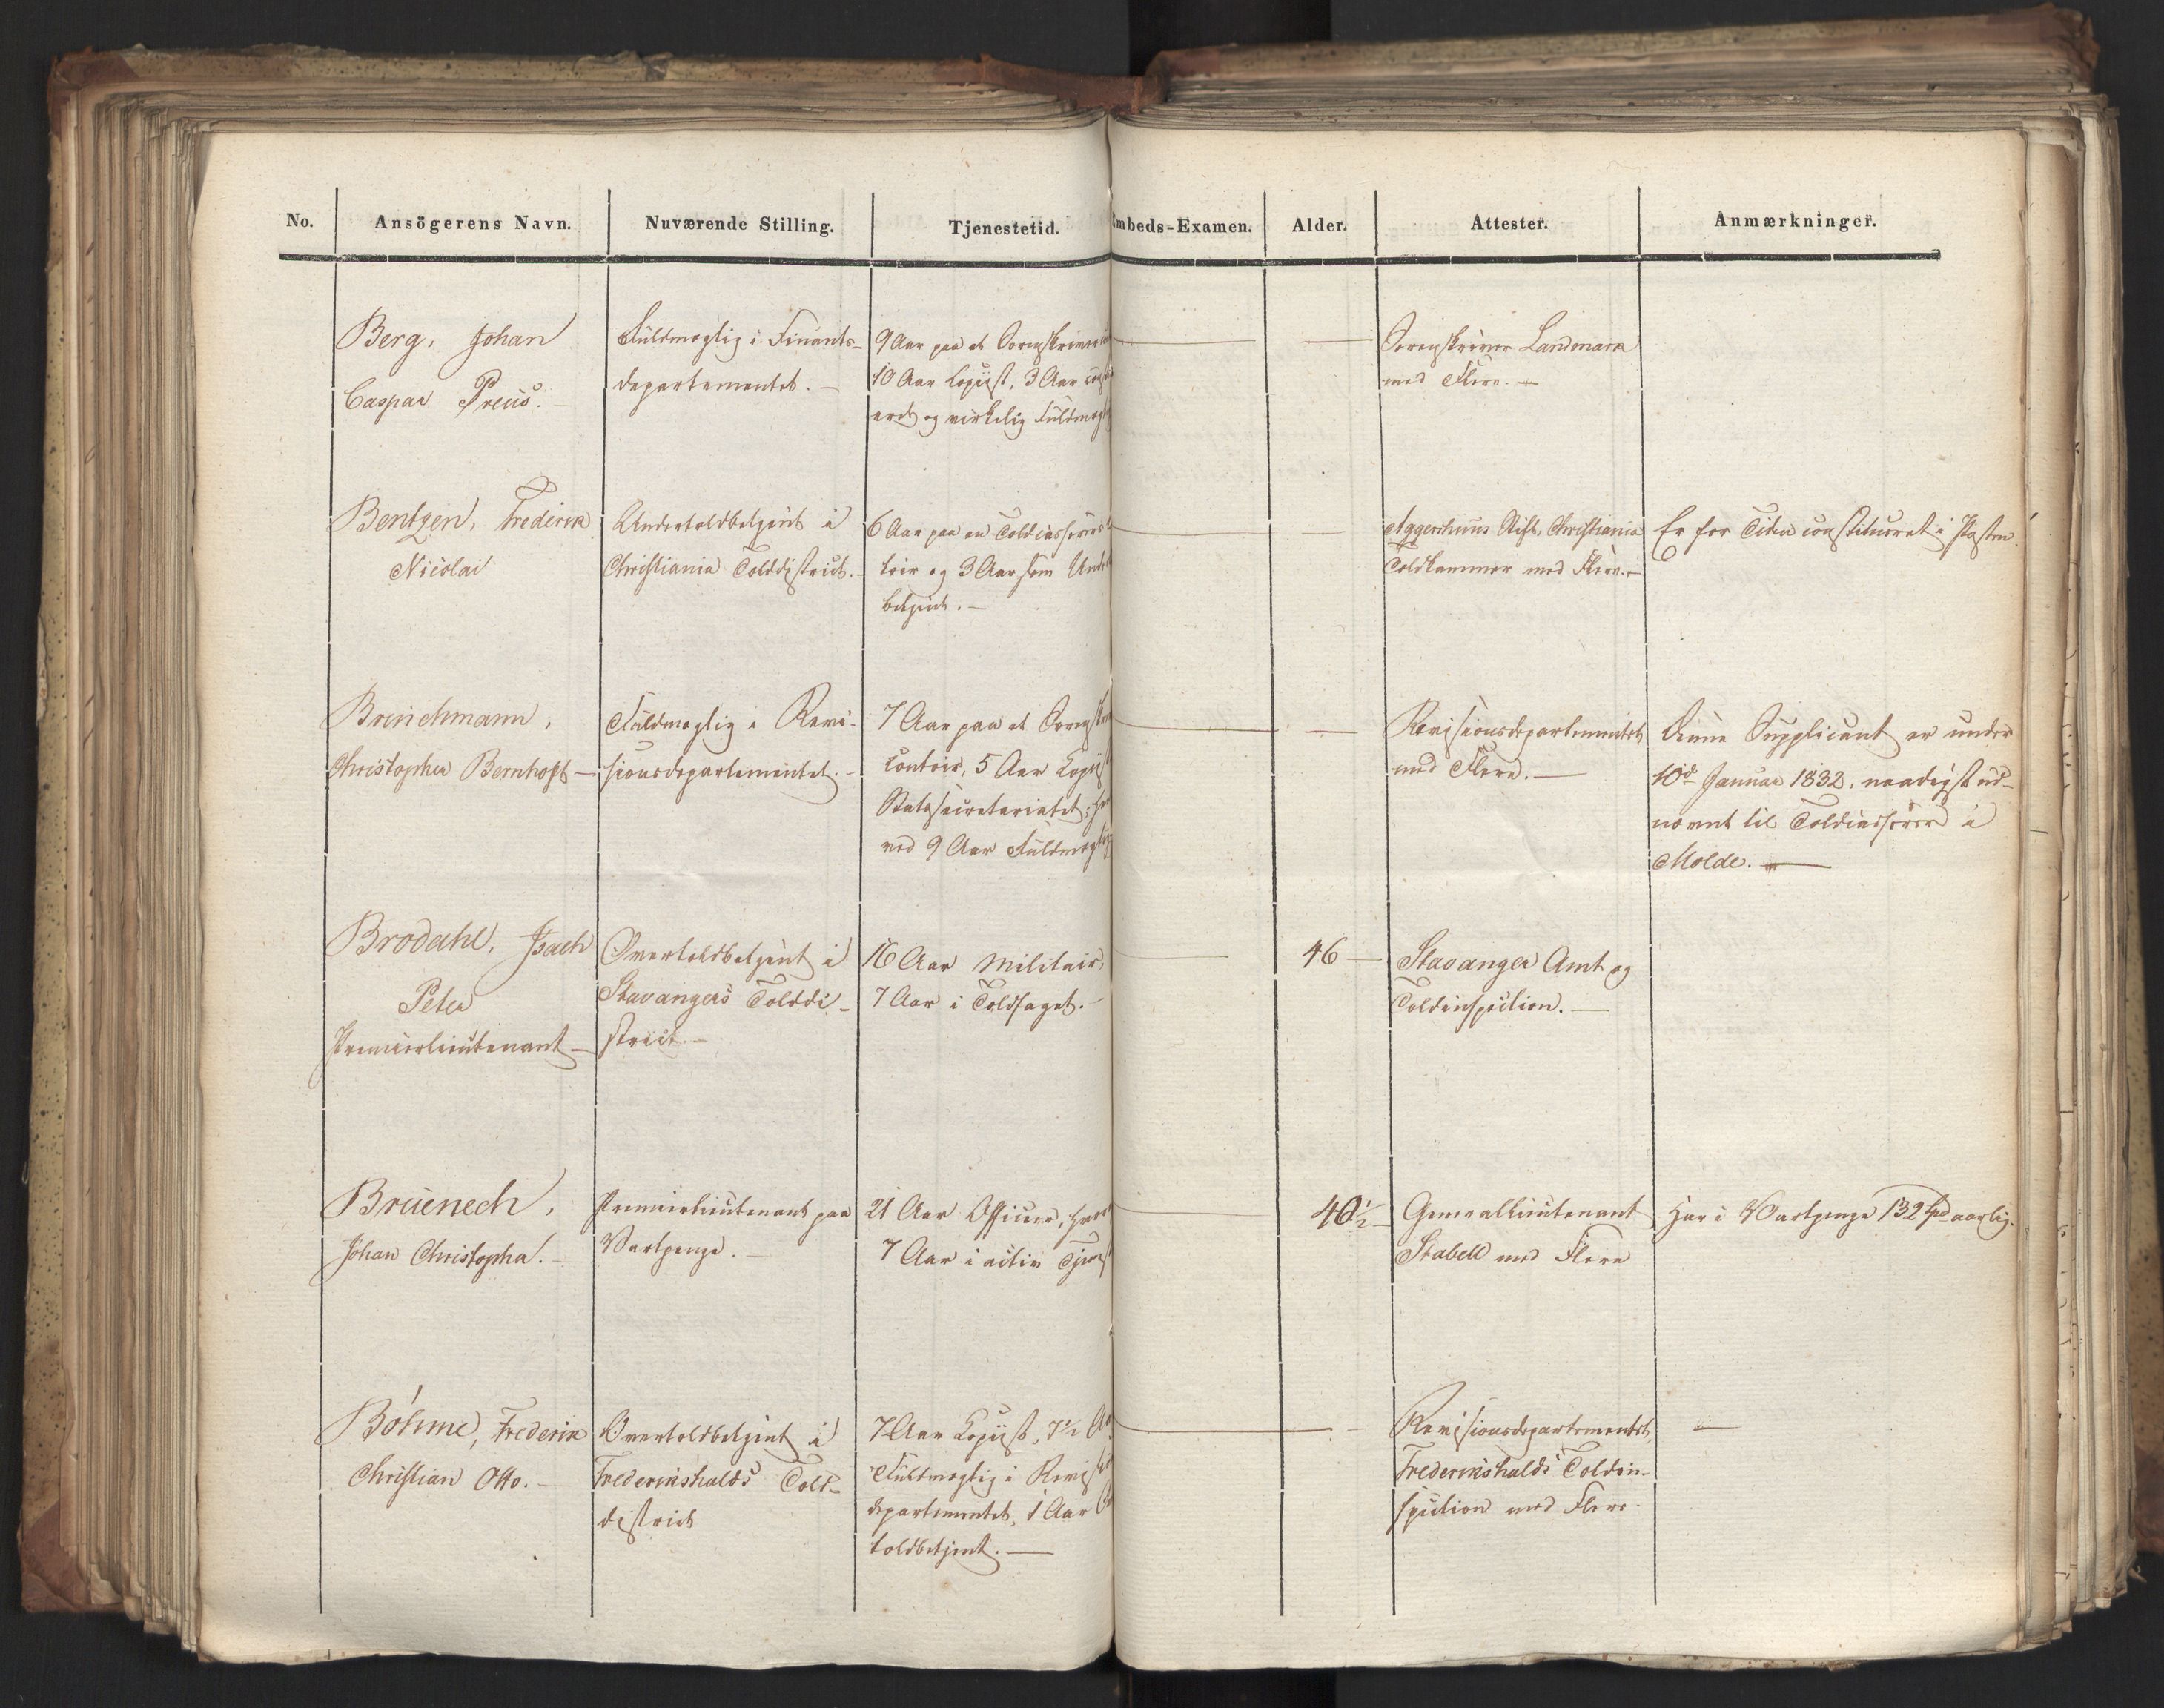 No.
Ansögerens Navn.
Nuværende Stilling.
Tjenestetid.
Embeds-Examen.
Alder.
Attester.
Anmærkninger.
Berg, Johan
Caspar Preus.
Fuldmægtig i Finants-
departementet. —
9 Aar paa et Sorenskriver
10 Aar Copiist, 3 Aar
eret og virkelig Fuldmægt
Sorenskriver Landmark
med Flere. —
Bentzen, Frederik
Nicolai
Undertoldbetjent i
Christiania Tolddistrict. —
6 Aar paa en Toldcasserers
toir og 3 Aar som Under
betjent. —
Aggershuus Stift, Christiania
Toldkammer med Flere. —
Er for Tiden constitueret i Posten.
Breichmann,
Christopher Bernhoft —
Fuldmægtig i Revi-
sionsdepartementet. —
7 Aar paa et Sorenskr
Contoir, 5 Aar Copiist
Statssecretariatet,
ved 9 Aar Fuldmægtig
Revisionsdepartementet
med Flere. —
Denne Supplicant er under
10de Januar 1832, naadigst ud-
nævnt til Toldcasserer i
Molde. —
Brodahl, Isach
Peter
Premierlieutenant —
Overtoldbetjent i
Stavangers Tolddi-
strict. —
16 Aar Militair,
7 Aar i Toldfaget. —
46 —
Stavanger Amt og
Toldinspection. —
Bruenech,
Johan Christopher. —
Premierlieutenant paa
Vartpenge. —
21 Aar Officeer, hvor
7 Aar i activ Tjenest
40½
Generallieutenant
Stabell med Flere
Har i Vartpenge 132 Spd aarlig.
Böhme, Frederik
Christian Otto. —
Overtoldbetjent i
Frederikshalds Told-
district
7 Aar Copiist, 7½ Aa
Fuldmægtig i Revisi
departementet, 1 Aar
toldbetjent. —
Revisionsdepartementet,
Frederikshalds Toldin-
spection med Flere.
—